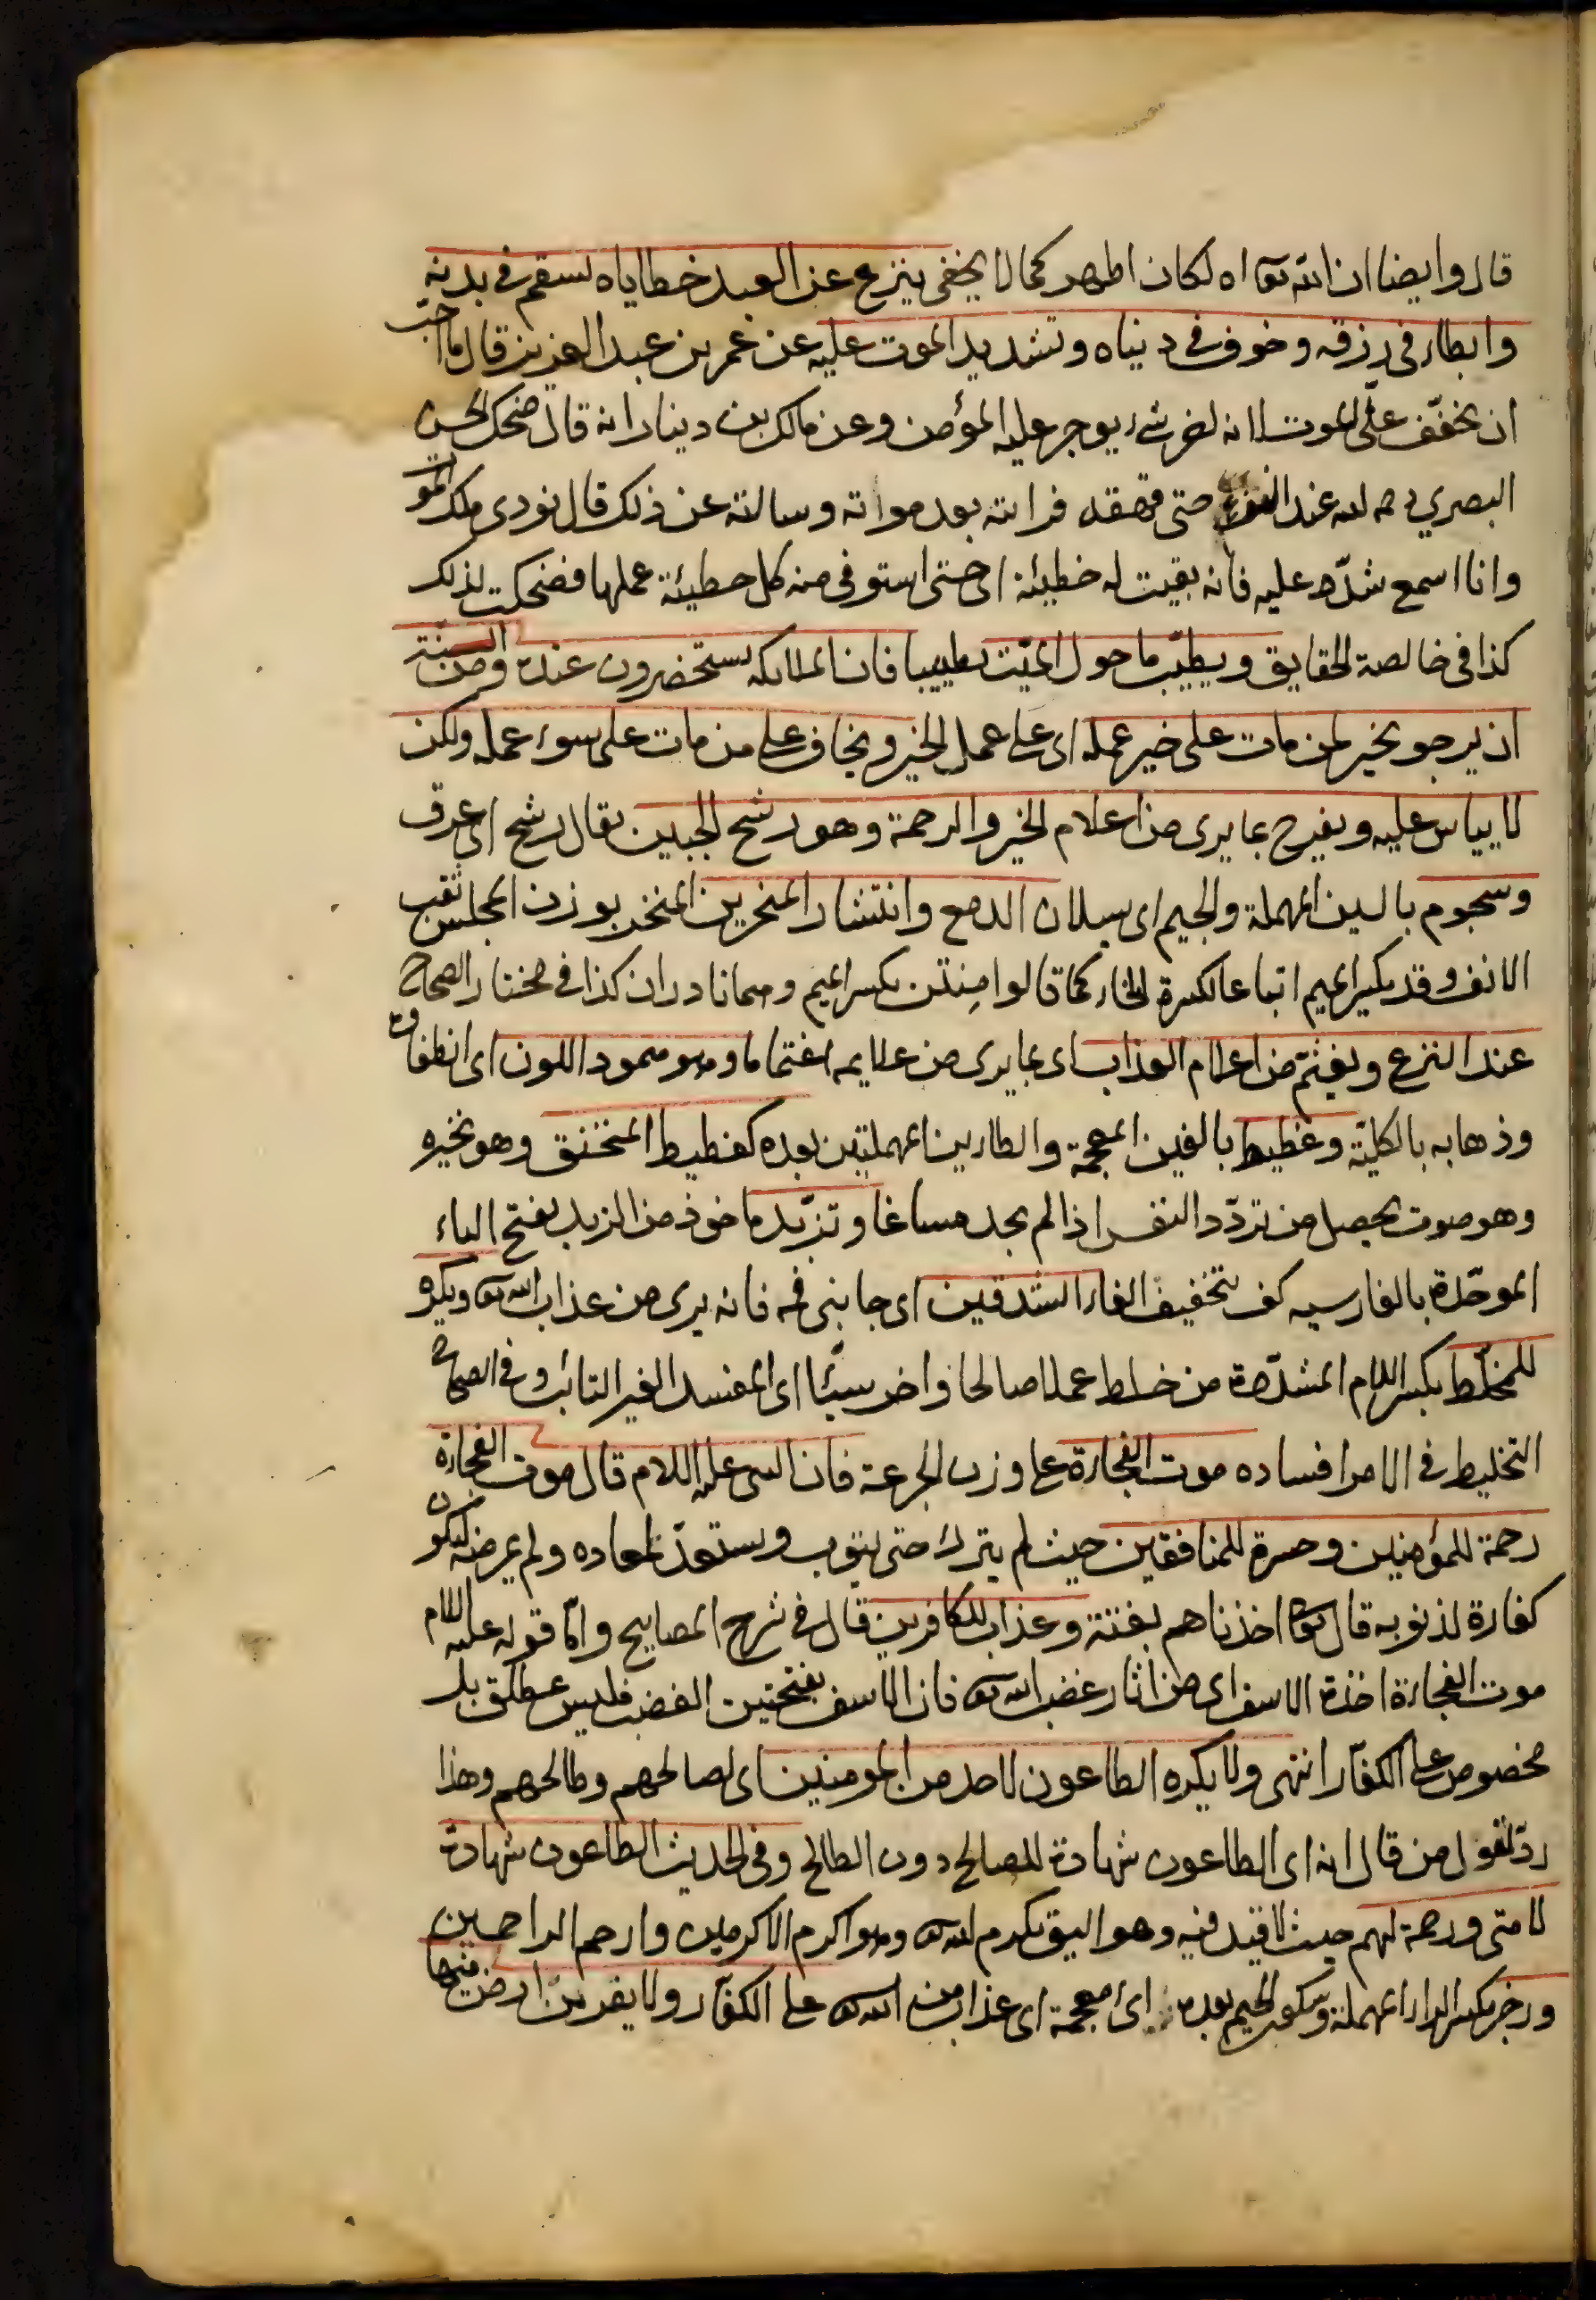 قال وايضا ان الله تعا اه لكان اظهر كما لا يخفى ينزع عن العبد خطاياه بسقم في بدنه
وابطاء في رزقه وخوف في دنياه وتشديد الموت عليه عن عمر بن عبد العزيز قال ما احب
ان يخفّف علّى الموت لانه لخر شئ يوجر عليه المؤمن وعن مالك بن دينار انه قال ضحك الحسن
البصري رحمه الله عند النزع حتى قهقه فراتته بعد مواته وسالته عن ذلك قال نودى ملك المو
وانا اسمع شدّد عليه فانه بقيت له خطيئة اى حتى استوفى منه كل خطيئة عملها فضحكت لذلك
كذا فى خالصة الحقايق ويطيّب ما حول الميّت تطييبا فان الملائكه يستحضرون عنده ومن السنّة
ان يرجو بخير لمن مات على خير عمله اى على عمل الخير ويخاف على من مات على سوء عمله ولكن
لا يياس عليه ويفرح بما يرى من اعلام الخير والرحمة وهو رشح الجبين يقال رشح اى عرق
وسجوم بالسين المهملة والجيم اى سيلان الدمع وانتشار المنخرين المنخر بوزن المجلس ثقب
الانف وقد يكسر الميم اتباعا لكسرة الخاء كما قالوا مِنتن بكسر الميم وهما نادران كذا فى مختار الصحاح
عند النزع ويغتّم من اعلام العذاب اى بما يرى من علايمه اغتماما وهو همود اللون اى انطفاؤه
وذهابه بالكليّة وغطيط بالغين المعجمة والطاءين المهملتين بعده كغطيط المختنق وهو نخيره
وهو صوت يحصل من تردّد النفس اذا لم يجد مساغا وتزبّد ماخوذ من الزبد بفتح الباء
الموحّدة بالفارسيه كف بتخفيف الفاء الشدقين اى جانبى فمه فانه يرى من عذاب الله تعا ويكره
للمخلّط بكسر اللام المشدّدة من خلط عملا صالحا واخر سيّئا اى المفسد الغير التائب وفى الصحاح
التخليط فى الامر افساده موت الفجاءة على وزن الجرعة فان النبى عليه السلام قال موت الفجاءة
رحمة للمؤمنين وحسرة للمنافقين حيث لم يترك حتى يتوب ويستعدّ لمعاده ولم يمرضه ليكون
كفارة لذنوبه قال تعا اخذناهم بغتتة وعذاب للكافرين قال فى شرح المصابيح وامّا قوله عليه السلام
موت الفجاءة اخذة الاسف اى من اثار غضب الله تعا فان الاسف بفتحتين الغضب فليس بمطلق بل
مخصوص على الكفّار انتهى ولا يكره الطاعون لاحد من المومنين اى لصالحهم وطالحهم وهذا
ردّ لقول من قال انه اى الطاعون شهادة للصالح دون الطالح وفى الحديث الطاعون شهادة
لامتى ورحمة لهم حيث لا قيد فيه وهو اليق بكرم الله تعا وهو اكرم الاكرمين وارحم الراحمين
ورجز بكسر الراء المهملة وسكون الجيم بعده زاى معجمة اى عذاب من الله تعا على الكفّار ولا يقدمنّ ارض فيها